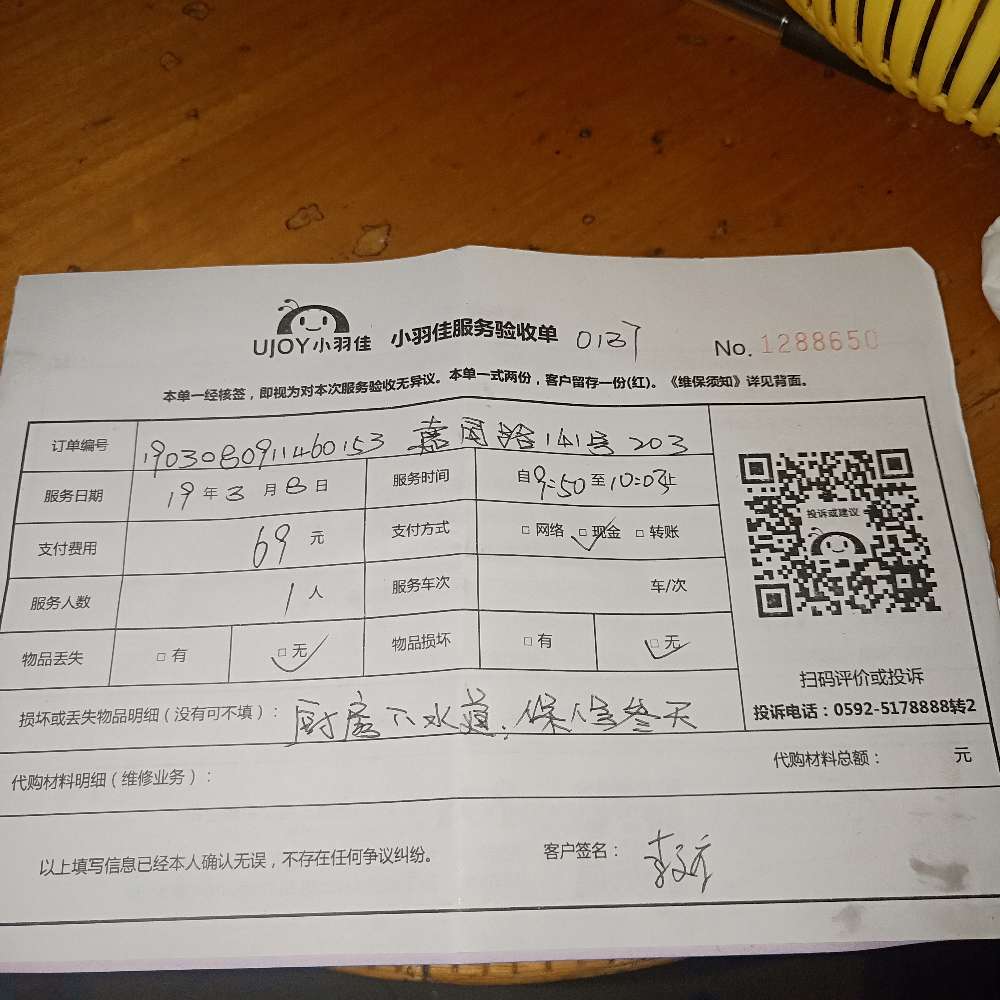 UJOY小羽佳 小羽佳服务验收单 0137 No. 1288650
本单一经核签，即视为对本次服务验收无异议。本单一式两份，客户留存一份(红)。《维保须知》详见背面。
订单编号 1903080911460153 141号 203
服务日期 19年3月8日 服务时间 自9:50至10:03止
支付费用 69元 支付方式 □网络 □现金 □转账
服务人数 1人 服务车次 车/次
物品丢失 □有 □无 物品损坏 □有 □无
投诉或建议
扫码评价或投诉
投诉电话：0592-5178888转2
损坏或丢失物品明细（没有可不填）： 厨房下水道，保修叁天
代购材料明细（维修业务）： 代购材料总额： 元
以上填写信息已经本人确认无误，不存在任何争议纠纷。 客户签名：